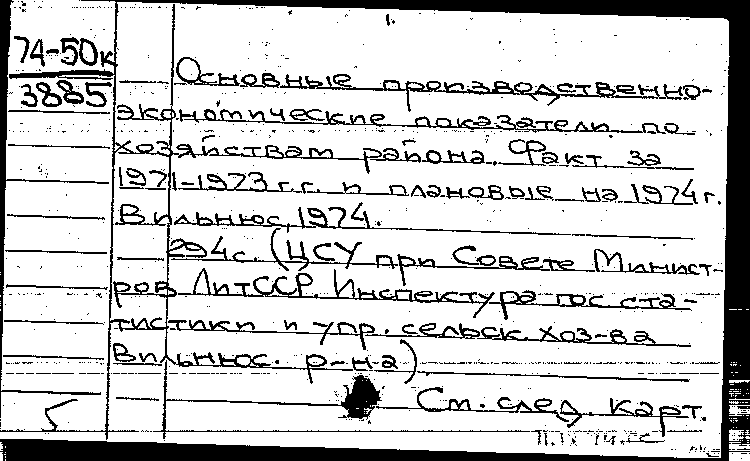 1.
74-50к
3885
Основные производственно-
экономические показатели по
хозяйствам района. Факт. за
1971-1973 г.г. и плановые на 1974 г.
Вильнюс, 1974.
294 с. (ЦСУ при Совете Минист-
ров ЛитССР. Инспектура гос. ста-
тистики и упр. сельск. хоз-ва
Вильнюс. р-на).
См. след. карт.
5